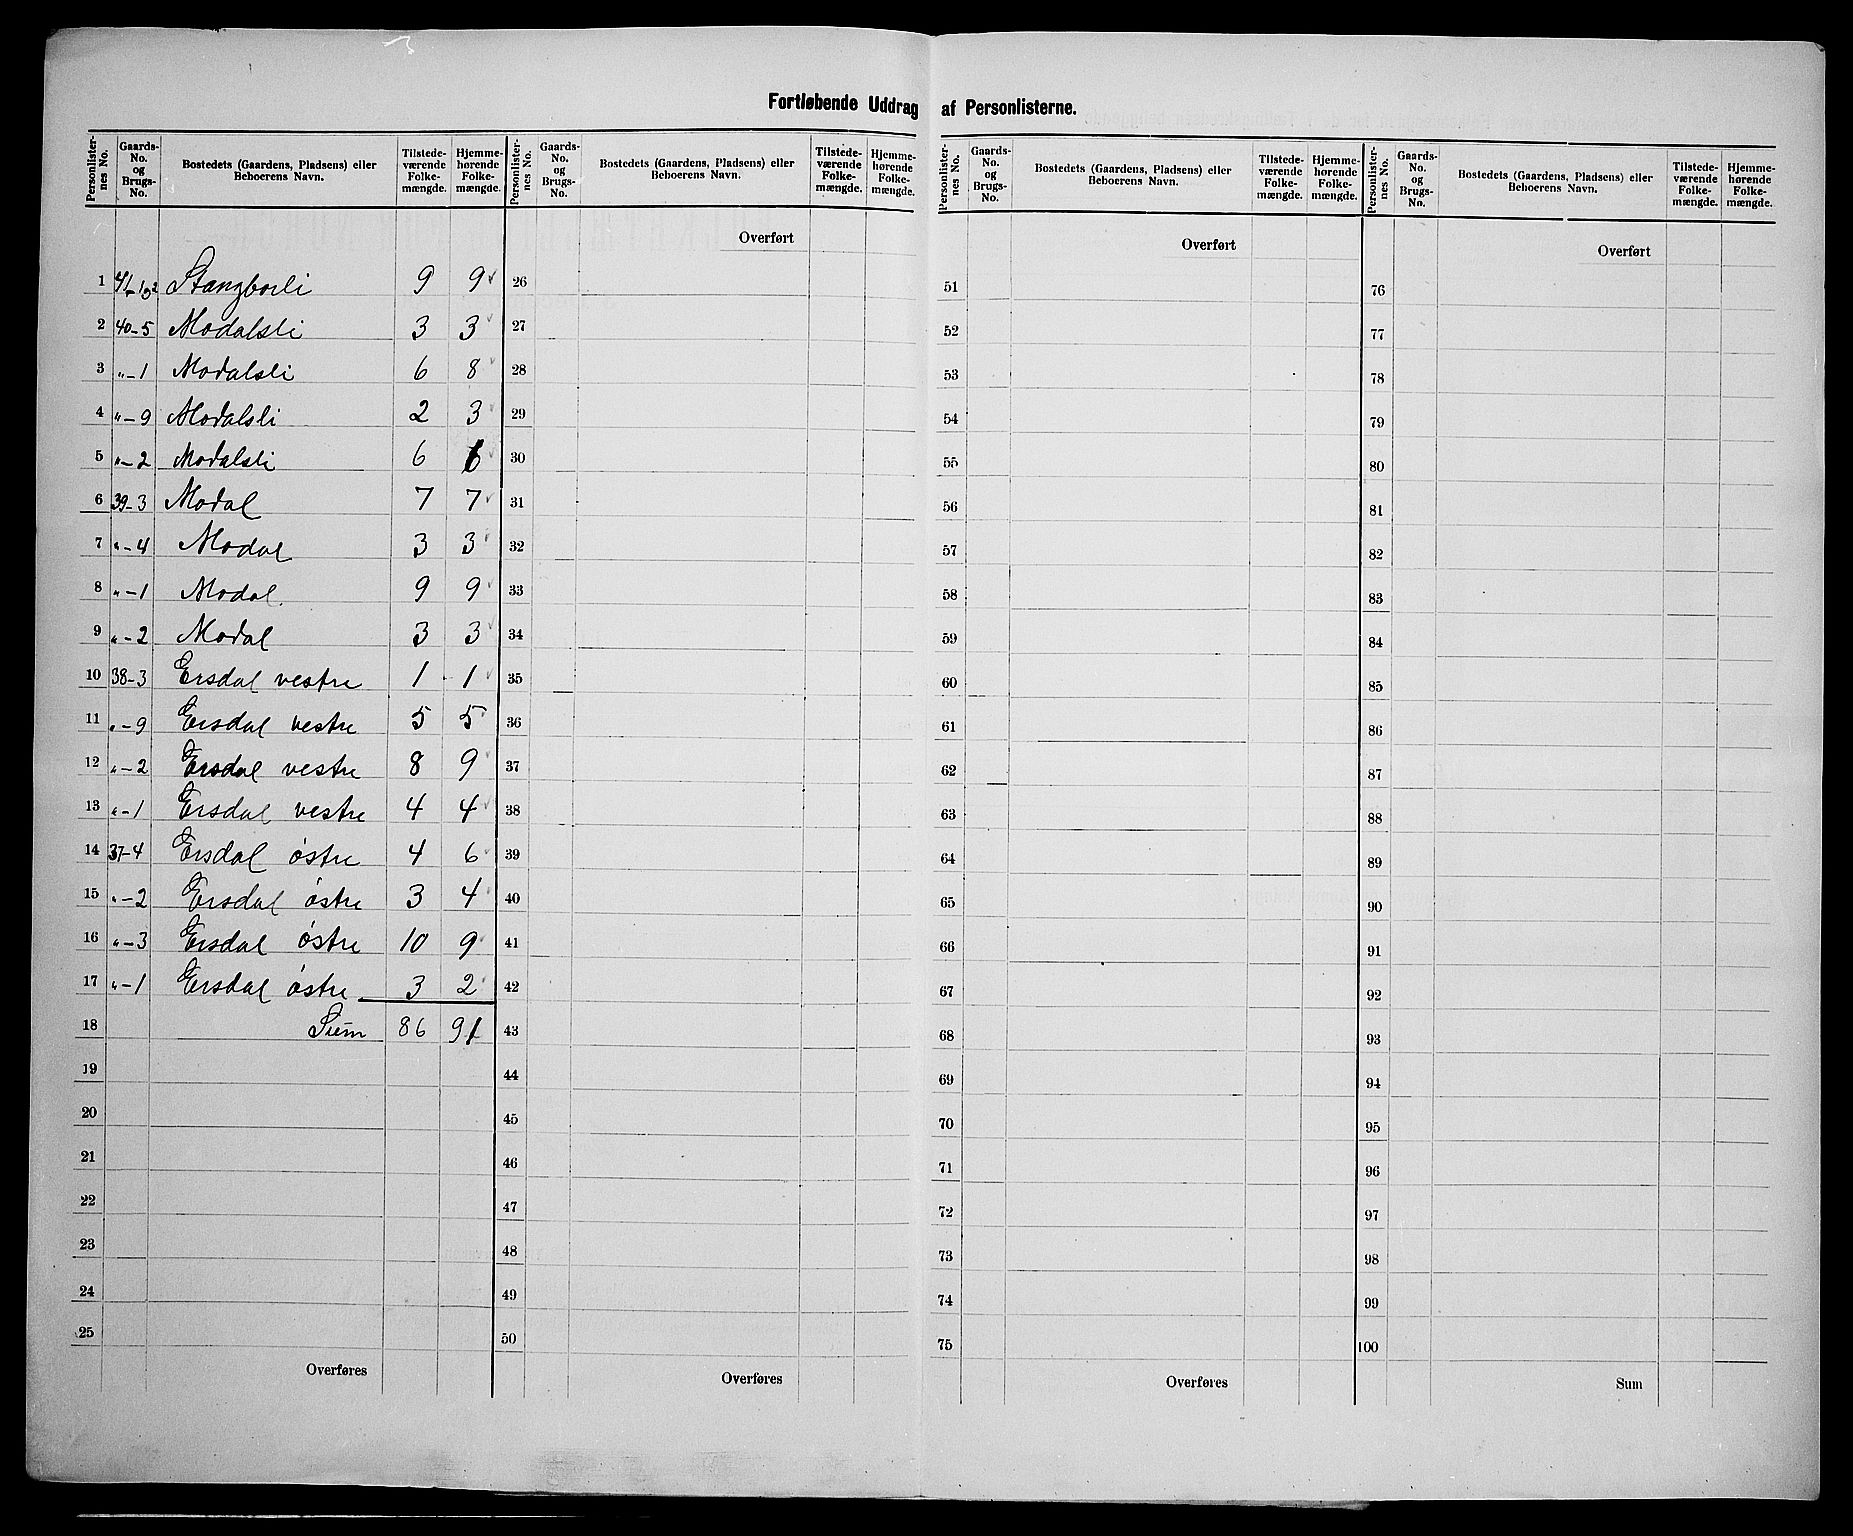 Fortløbende Uddrag af Personlisterne.
Personlister-nes No. | Gaards-No. og Brugs-No. | Bostedets (Gaardens, Pladsens) eller Beboerens Navn. | Tilstede-værende Folke-mængde. | Hjemme-hørende Folke-mængde.
1 41-1,2 Stangborli 9 9
2 40-5 Modalsli 3 3
3 „-1 Modalsli 6 8
4 „-9 Modalsli 2 3
5 „-2 Modalsli 6 6
6 39-3 Modal 7 7
7 „-4 Modal 3 3
8 „-1 Modal 9 9
9 „-2 Modal 3 3
10 38-3 Ersdal vestre 1 1
11 „-9 Ersdal vestre 5 5
12 „-2 Ersdal vestre 8 9
13 „-1 Ersdal vestre 4 4
14 37-4 Ersdal östre 4 6
15 „-2 Ersdal östre 3 4
16 „-3 Ersdal östre 10 9
17 „-1 Ersdal östre 3 2
18 Sum 86 91
19
20
21
22
23
24
25
Overføres
Personlister-nes No. | Gaards-No. og Brugs-No. | Bostedets (Gaardens, Pladsens) eller Beboerens Navn. | Tilstede-værende Folke-mængde. | Hjemme-hørende Folke-mængde.
Overført
26
27
28
29
30
31
32
33
34
35
36
37
38
39
40
41
42
43
44
45
46
47
48
49
50
Overføres
Personlister-nes No. | Gaards-No. og Brugs-No. | Bostedets (Gaardens, Pladsens) eller Beboerens Navn. | Tilstede-værende Folke-mængde. | Hjemme-hørende Folke-mængde.
Overført
51
52
53
54
55
56
57
58
59
60
61
62
63
64
65
66
67
68
69
70
71
72
73
74
75
Overføres
Personlister-nes No. | Gaards-No. og Brugs-No. | Bostedets (Gaardens, Pladsens) eller Beboerens Navn. | Tilstede-værende Folke-mængde. | Hjemme-hørende Folke-mængde.
Overført
76
77
78
79
80
81
82
83
84
85
86
87
88
89
90
91
92
93
94
95
96
97
98
99
100
Sum